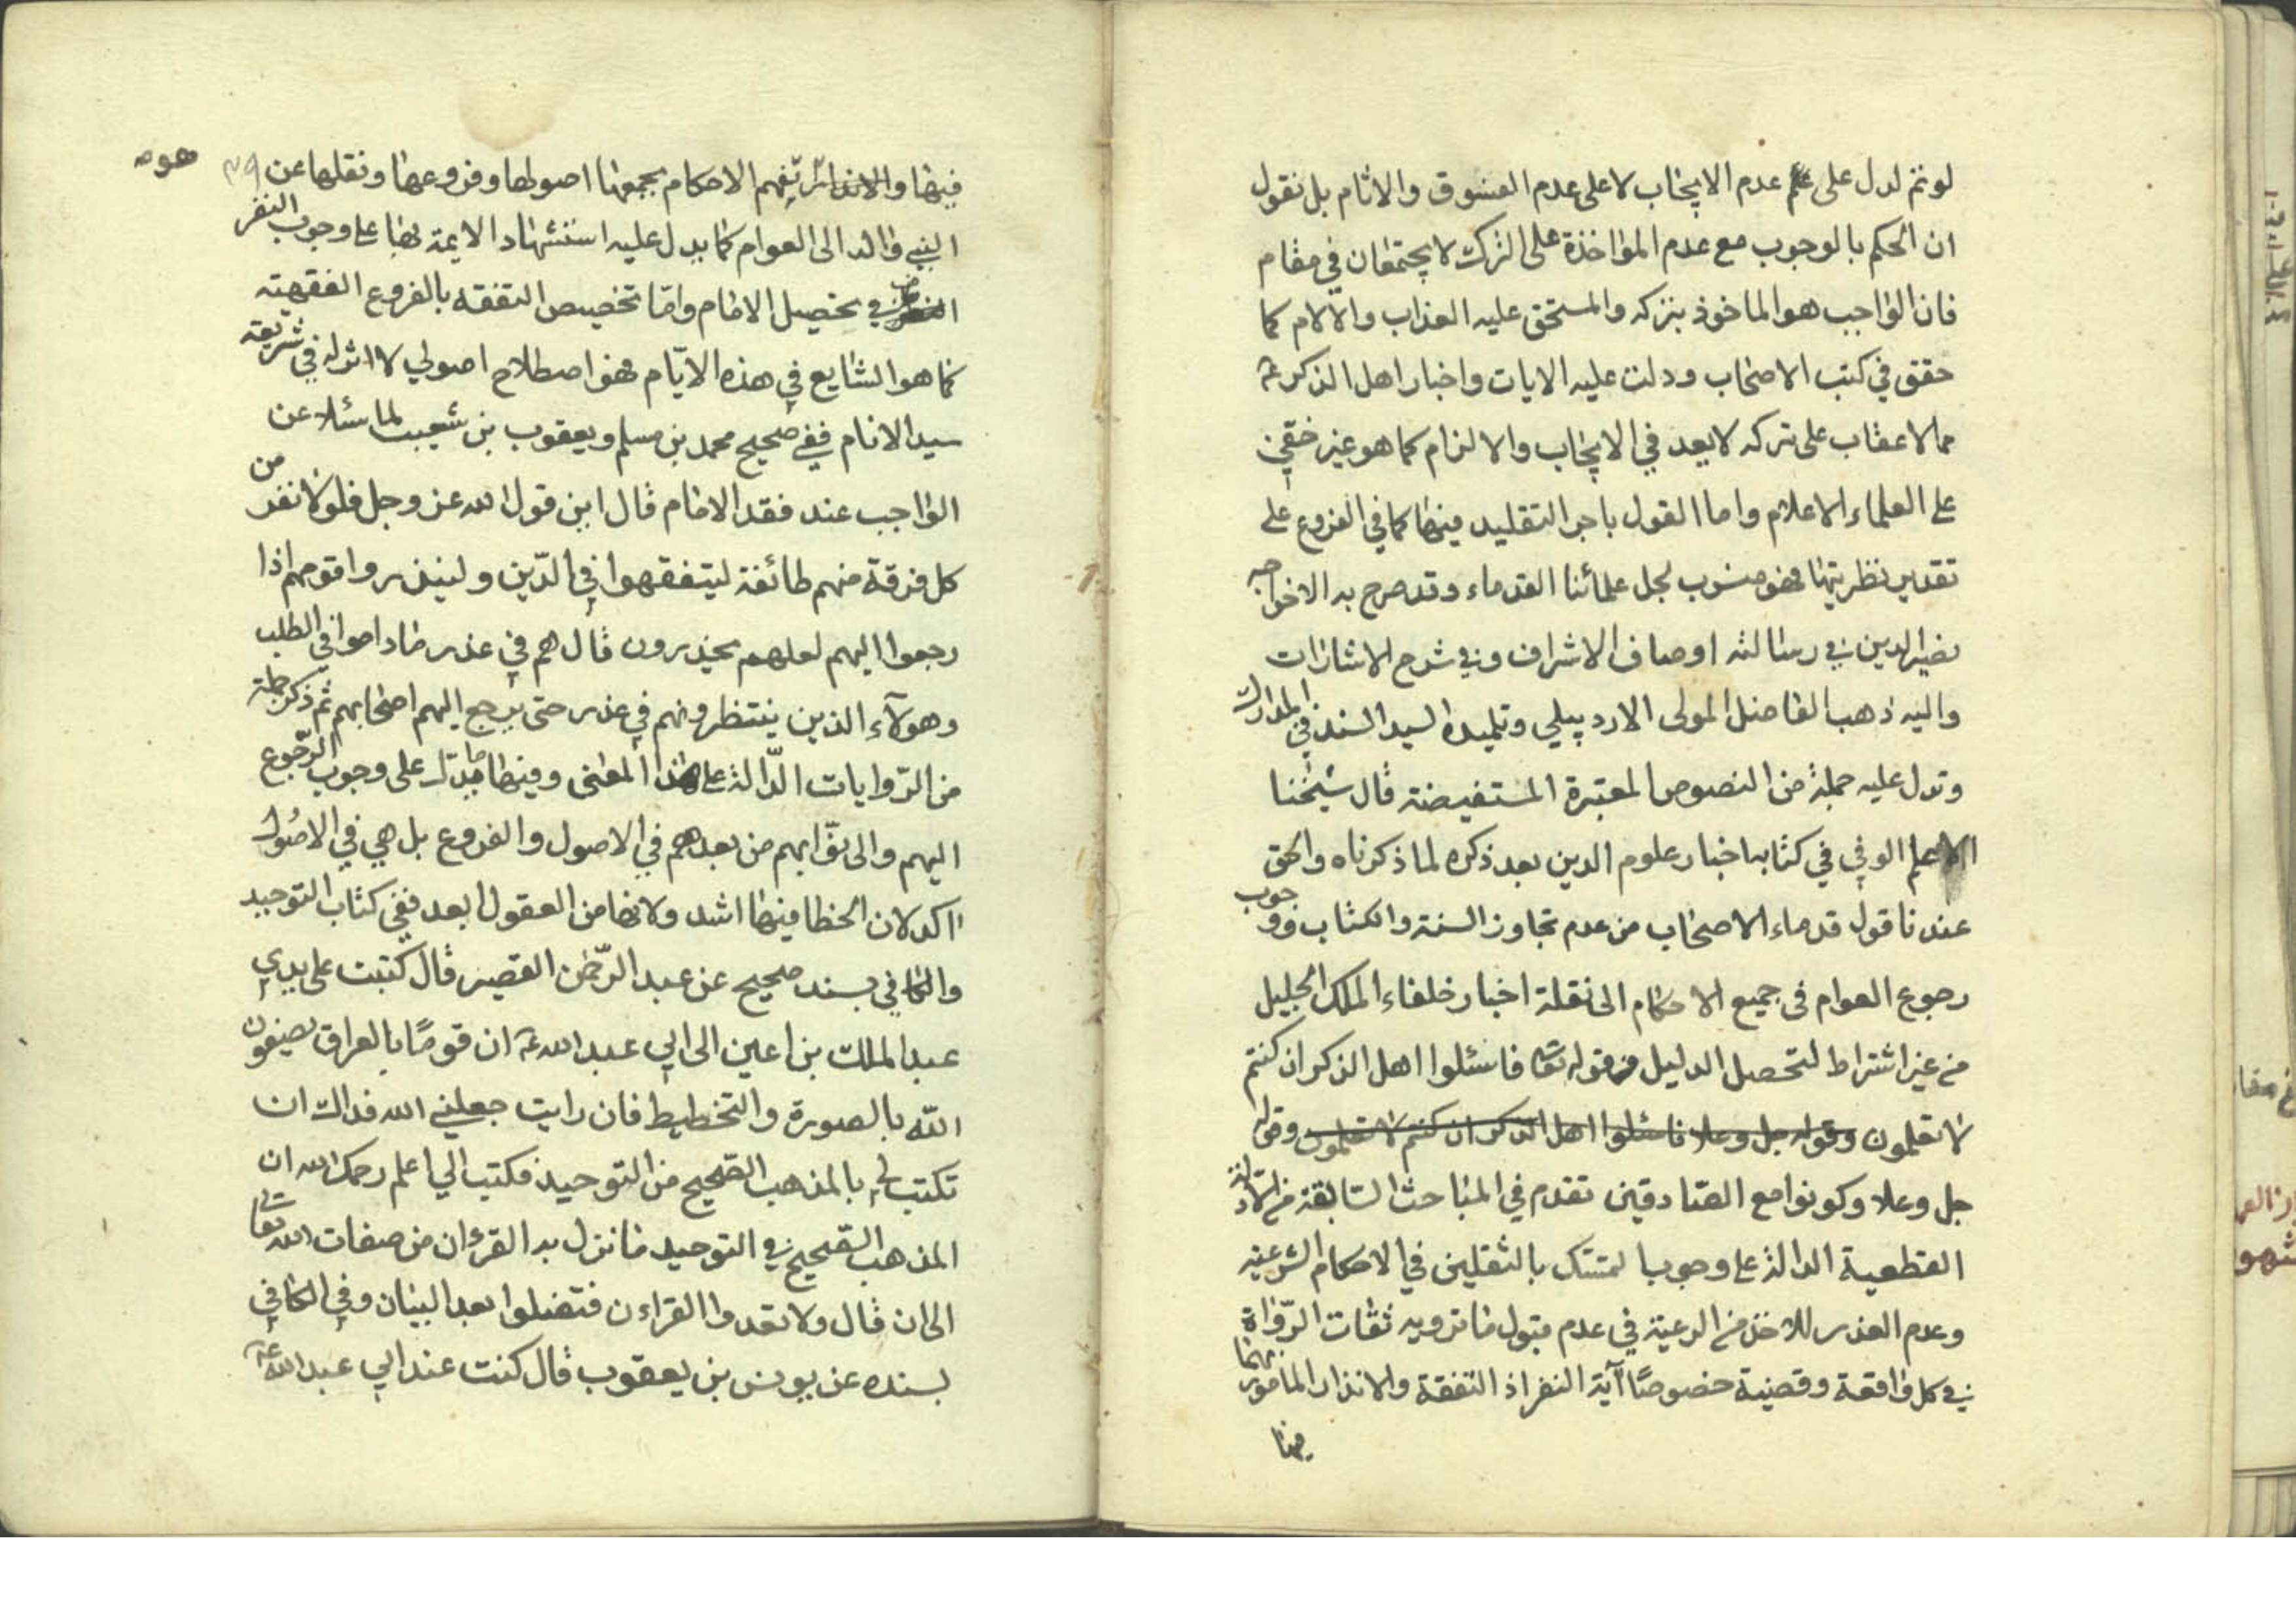 لو تم لدل على عدم الايجاب لا على عدم الفسوق والاثام بل نقول
ان الحكم بالوجوب مع عدم المؤاخذة على الترك لا يجتمعان في مقام
فان الواجب هو الماخوذ بتركه والمستحق عليه العذاب والآلام كما
حقق في كتب الاصحاب ودلت عليه الايات واخبار اهل الذكر ع
مما لا عقاب على تركه لا يعد في الايجاب والالزام كما هو غير خفي
على العلماء الاعلام واما القول باجراء التقليد فيها كما في الفروع على
تقدير نظريتها فهو منسوب لجل علمائنا القدماء وقد صرح به الاخواجه
نصير الدين في رسالته اوصاف الاشراف وفي شرح الاشارات
واليه ذهب الفاضل المولى الاردبيلي وتلميذه السيد السند في المدارك
وتدل عليه جملة من النصوص المعتبرة المستفيضة قال شيخنا
الوفي في كتابه اخبار علوم الدين بعد ذكره لما ذكرناه والحق
عندنا قول قدماء الاصحاب من عدم تجاوز السنة والكتاب ووجوب
رجوع العوام في جميع الاحكام الى نقلة اخبار خلفاء الملك الجليل
من غير اشتراط لتحصل الدليل من قوله تعا فاسئلوا اهل الذكر ان كنتم
لا تعلمون وقوله جل وعلا فاسئلوا اهل الذكر ان كنتم لا تعلمون وقوله
جل وعلا وكونوا مع الصادقين تقدم في المباحث السابقة من الادلة
القطعية الدالة على وجوب التمسك بالثقلين في الاحكام الشرعيه
وعدم العذر للاخذ من الرعية في عدم قبول ما ترويه ثقات الرّواة
في كل واقعة وقضية خصوصًا آية النفر اذ التفقة والانذار المامور بهما
فيها
هو ٣٩
فيها والانذار تفهم الاحكام بجمعها اصولها وفروعها ونقلها عن
النبي وآله الى العوام كما يدل عليه استشهاد الايمة بها على وجوب النفر
في تحصيل الامام وامّا تخصيص التفقه بالفروع الفقهية
كما هو الشايع في هذه الايّام فهو اصطلاح اصولي لا اثر له في شريعة
سيد الانام ففي صحيح محمد بن مسلم ويعقوب بن شعيب لما سئلا عن
الواجب عند فقد الامام قال اين قول الله عز وجل فلولا نفر من
كل فرقة منهم طائفة ليتفقهوا في الدّين ولينذروا قومهم اذا
رجعوا اليهم لعلهم يحذرون قال هم في عذر ما داموا في الطلب
وهولآء الذين ينتظرونهم في عذر حتى يرجع اليهم اصحابهم ثم ذكر جملة
من الرّوايات الدّالة على هذا المعنى وفيها ما يدل على وجوب الرّجوع
اليهم والى نوّابهم من بعدهم في الاصول والفروع بل هي في الاصول
آكد لان الخطا فيها اشد ولانها من العقول ابعد ففي كتاب التوحيد
والكافي بسند صحيح عن عبد الرّحمن القصير قال كتبت على يدي
عبد الملك بن اعين الى ابي عبد الله ع ان قومًا بالعراق يصفون
الله بالصورة والتخطيط فان رايت جعلني الله فداك ان
تكتب لي بالمذهب الصحيح من التوحيد فكتب الي اعلم رحمك الله ان
المذهب الصّحيح في التوحيد ما نزل به القرءان من صفات الله تعالى
الى ان قال ولا تعدوا القرءان فتضلوا بعد البيان وفي الكافي
بسنده عن يونس بن يعقوب قال كنت عند ابي عبد الله ع